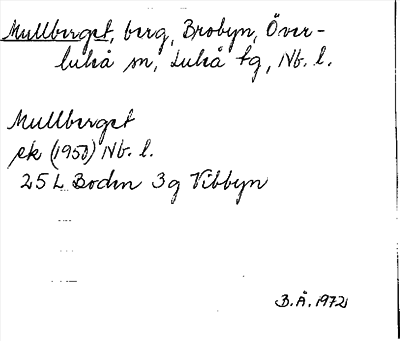 Mullberget, berg, Brobyn, Över-
luleå sn, Luleå tg, Nb. l.
Mullberget
ek (1950) Nb. l.
25 L Boden 3g Vibbyn
B.Å. 1972